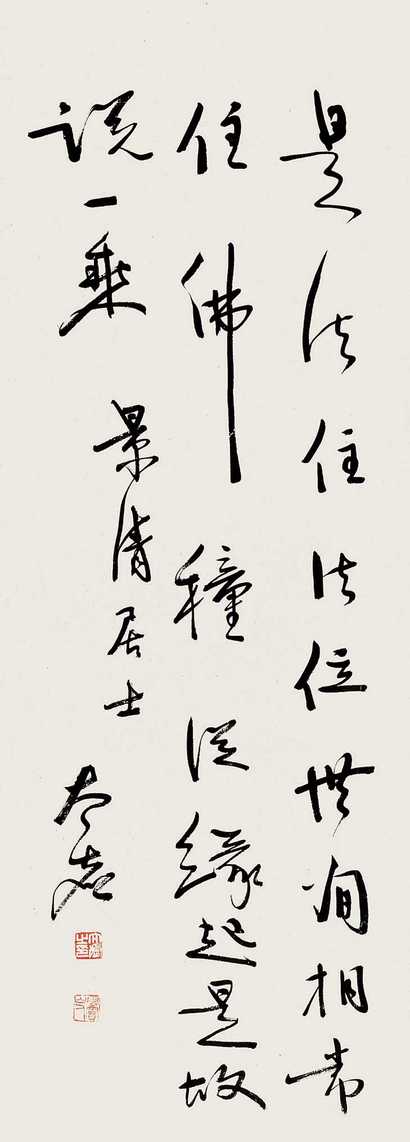 是法住法位世间相常
住佛種從緣起是故
說一乘
景清居士
太虛